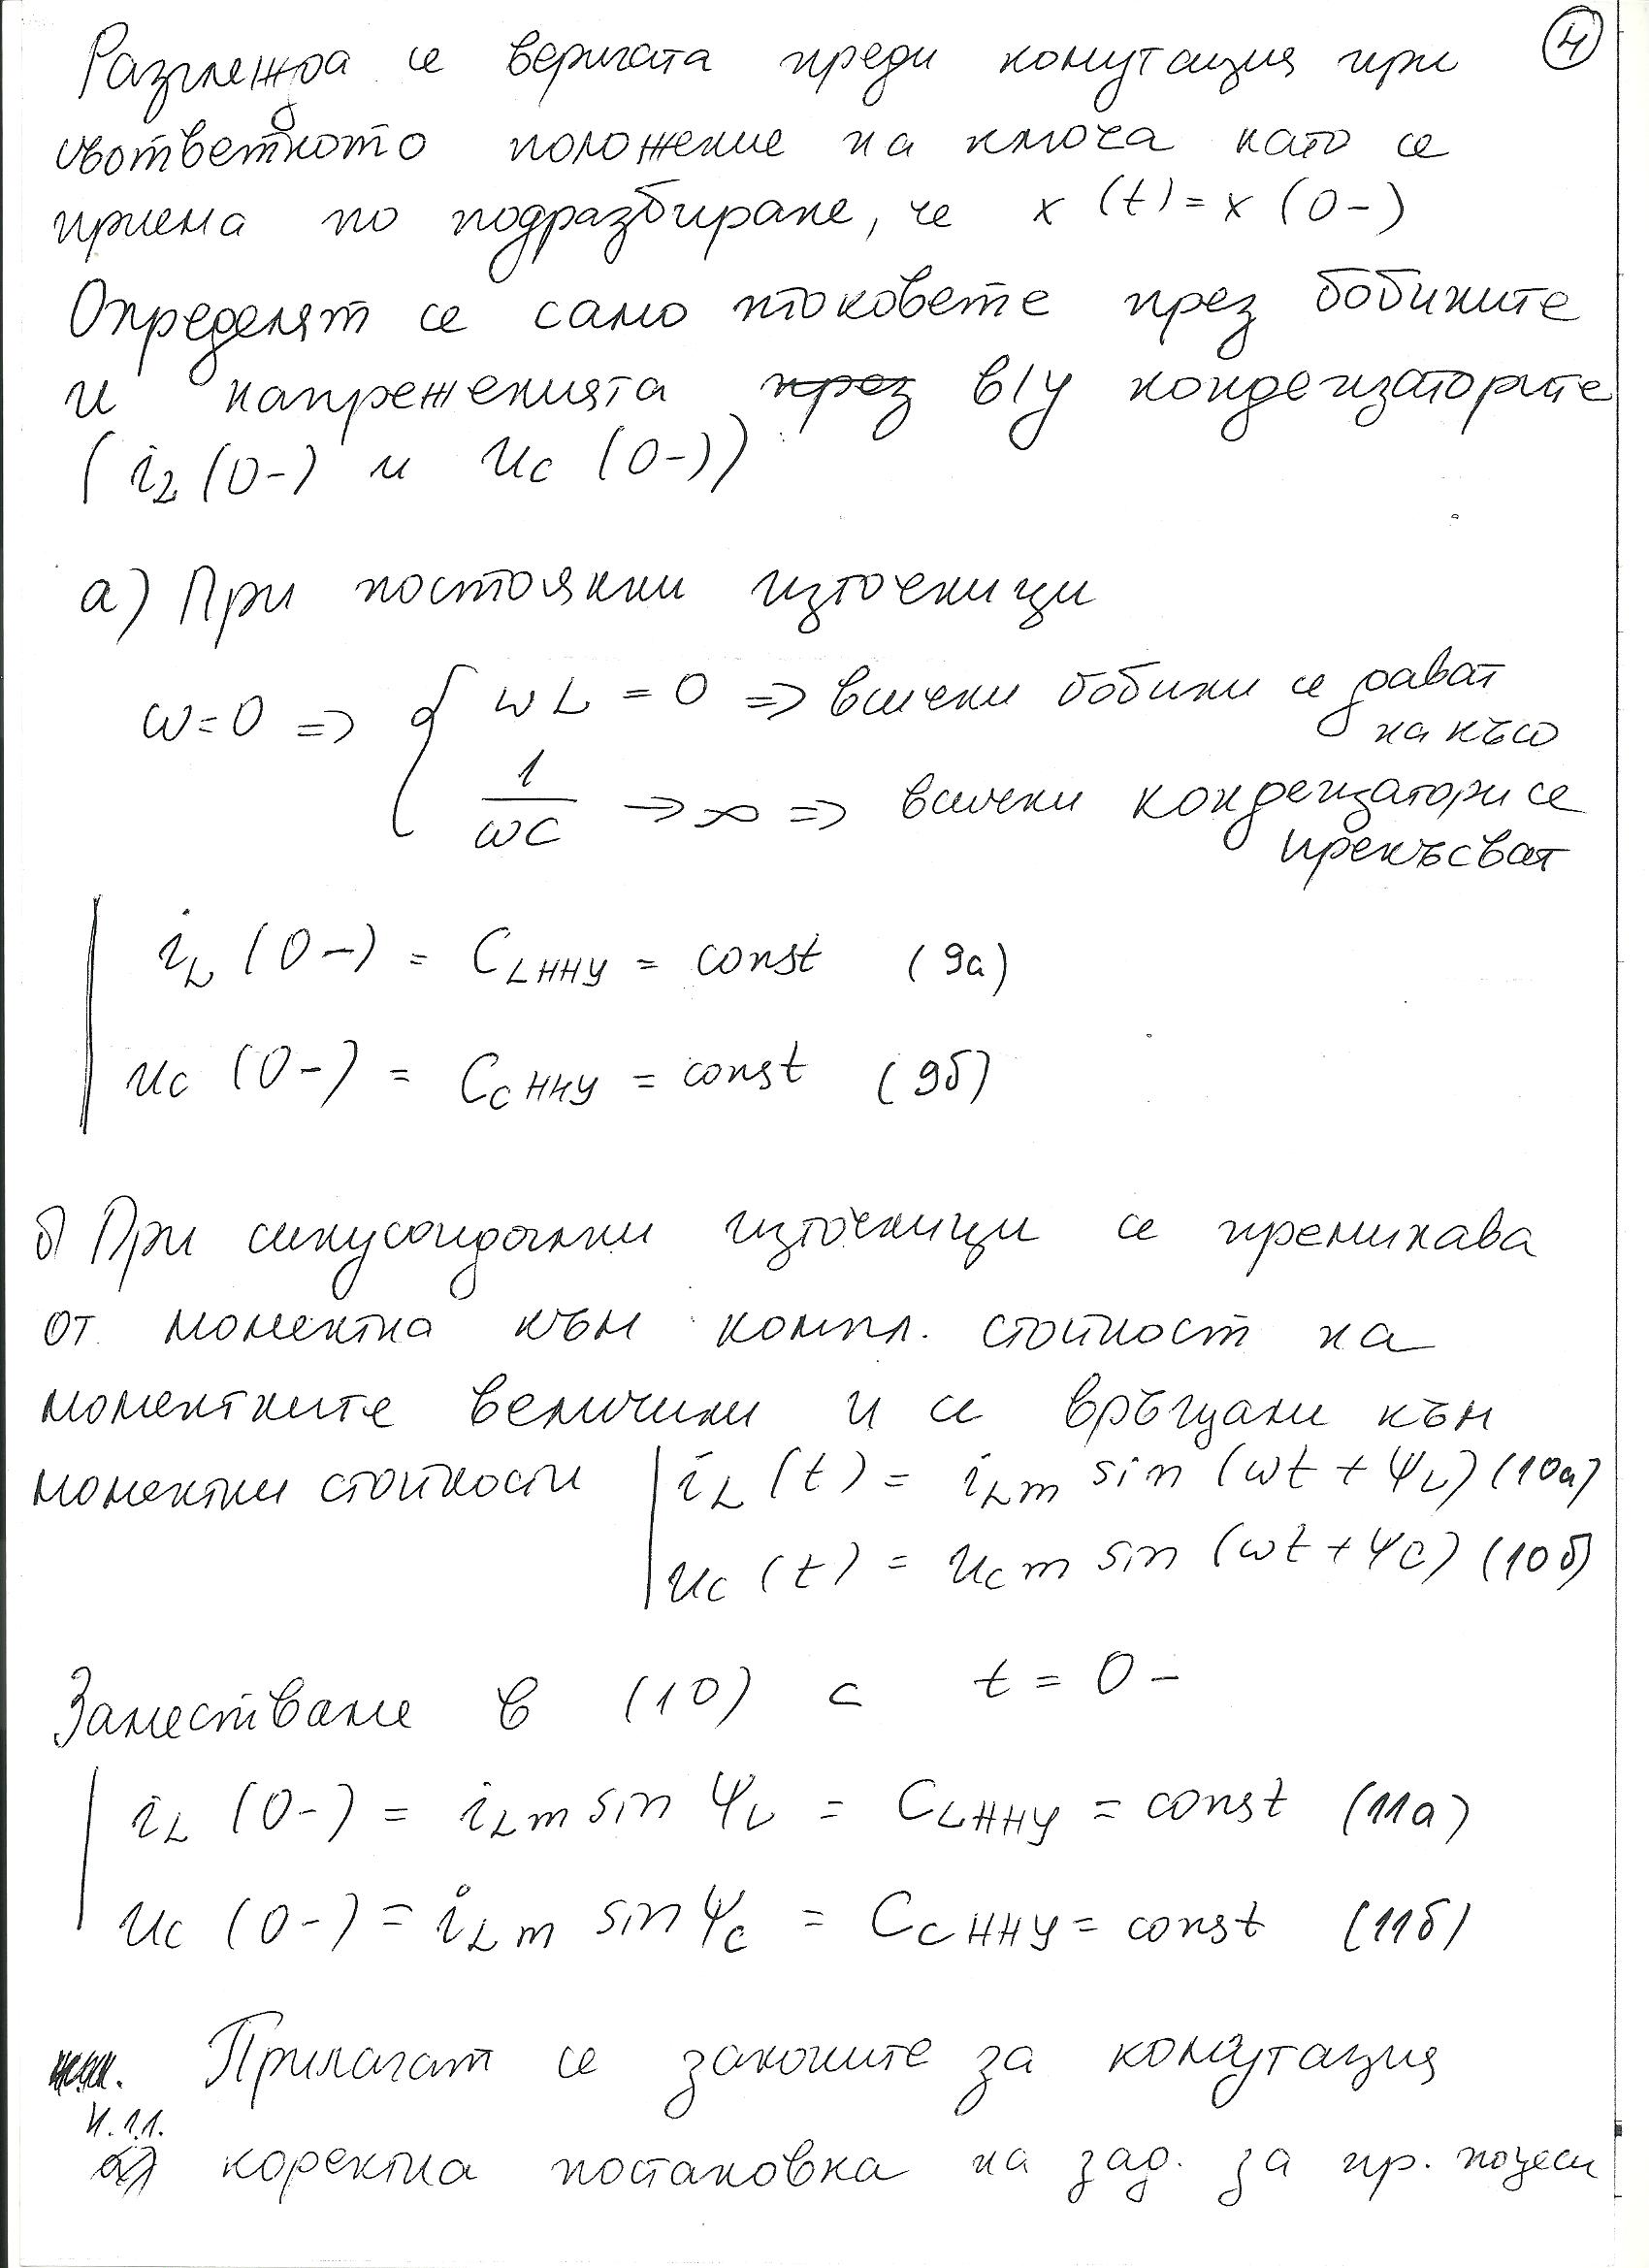 Разглежда се веригата преди комутация при ④
съответното положение на ключа като се
приема по подразбиране, че x (t) = x (0-)
Определят се само токовете през бобините
и напреженията през в/у кондензаторите
(i_L (0-) и u_C (0-))
а) При постоянни източници
ω=0 => { ωL = 0 => всички бобини се дават
на късо
1/ωC → ∞ => всички кондензатори се
прекъсват
i_L (0-) = C_LННУ = const (9а)
u_C (0-) = C_CННУ = const (9б)
б) При синусоидални източници се преминава
от моментна към компл. стойност на
моментните величини и се връщаме към
моментни стойности i_L (t) = i_Lm sin (ωt + ψ_L) (10а)
u_C (t) = u_Cm sin (ωt + ψ_C) (10б)
Заместваме в (10) с t = 0-
i_L (0-) = i_Lm sin ψ_L = C_LННУ = const (11а)
u_C (0-) = i_Lm sin ψ_C = C_CННУ = const (11б)
Прилагат се законите за комутация
4.1.1.
коректна постановка на зад. за пр. поцеси